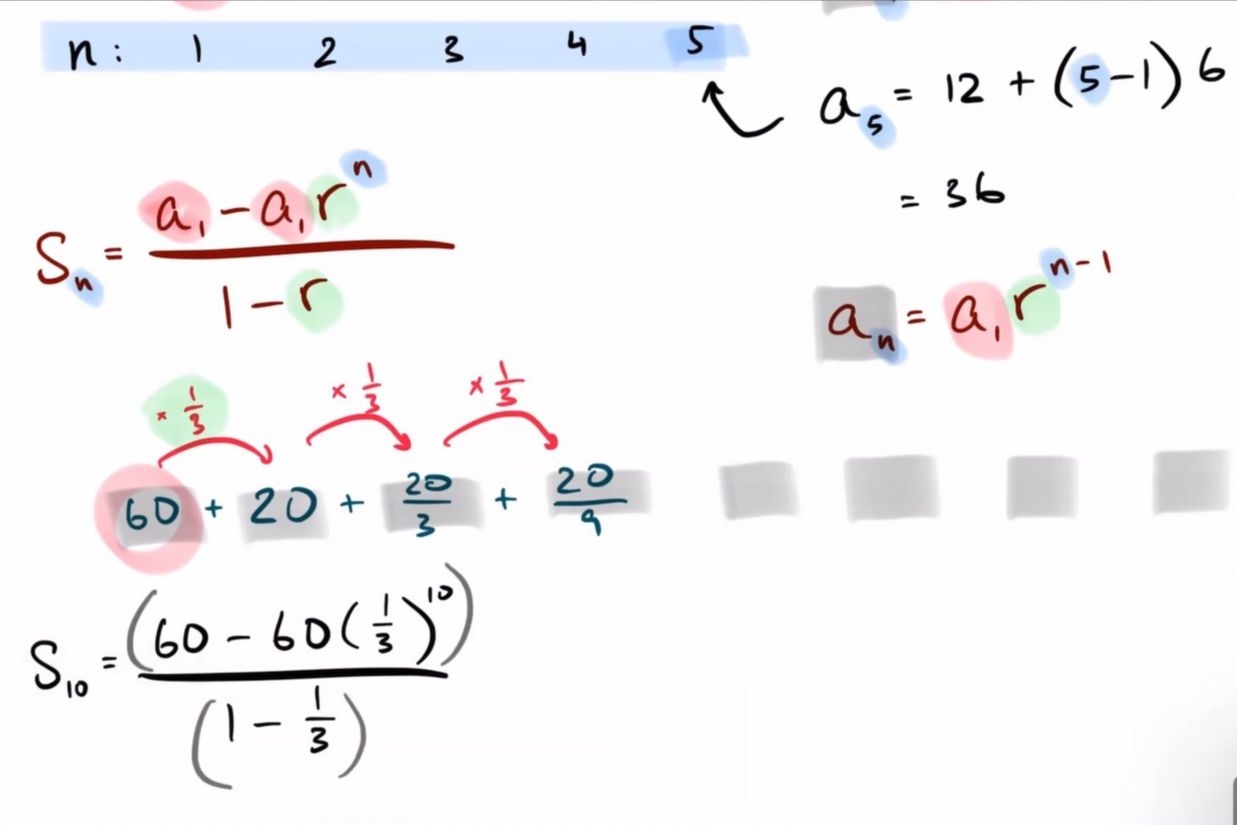 n: 1 2 3 4 5
a₅ = 12 + (5-1) 6
= 36
Sₙ = (a₁ - a₁rⁿ)/(1 - r)
aₙ = a₁rⁿ⁻¹
× 1/3 × 1/3 × 1/3
60 + 20 + 20/3 + 20/9
S₁₀ = (60 - 60(1/3)¹⁰)/(1 - 1/3)